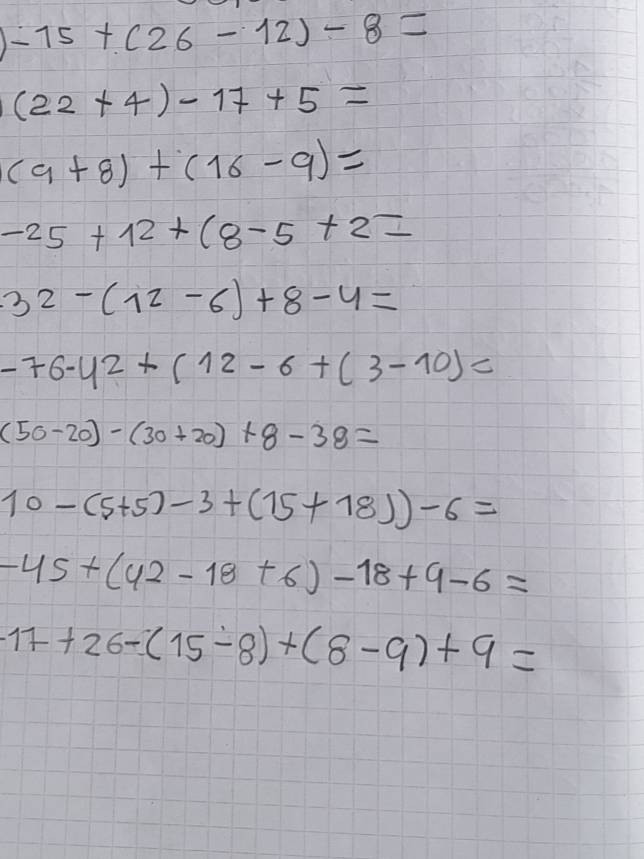 )-15 + (26 - 12) - 8 =
(22 + 4) - 17 + 5 =
(9 + 8) + (16 - 9) =
-25 + 12 + (8 - 5 + 2 =
32 - (12 - 6) + 8 - 4 =
-76-42 + (12 - 6 + (3 - 10) =
(50-20) - (30+20) + 8 - 38 =
10 - (5+5) - 3 + (15 + 18)) - 6 =
-45 + (42 - 18 + 6) - 18 + 9 - 6 =
-17 + 26 - (15 - 8) + (8 - 9) + 9 =